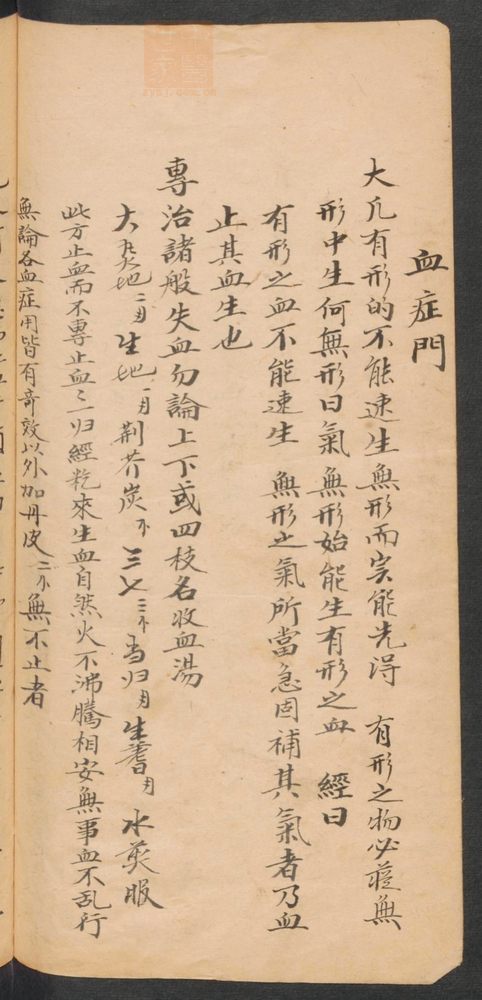 血症門
大凡有形的不能速生無形而实能先得 有形之物必從無
形中生何無形曰氣無形始能生有形之血 經曰
有形之血不能速生 無形之气所當急固補其氣者乃血
止其血生也
專治諸般失血勿論上下或四枝名收血湯
大熟地二両生地一両荆芥炭三七当归生耆水煎服
此方止血而不專止血血归經乾來生血自然火不沸騰相安無事血不乱行
無論各血症用皆有奇效以外加丹皮二小無不止者